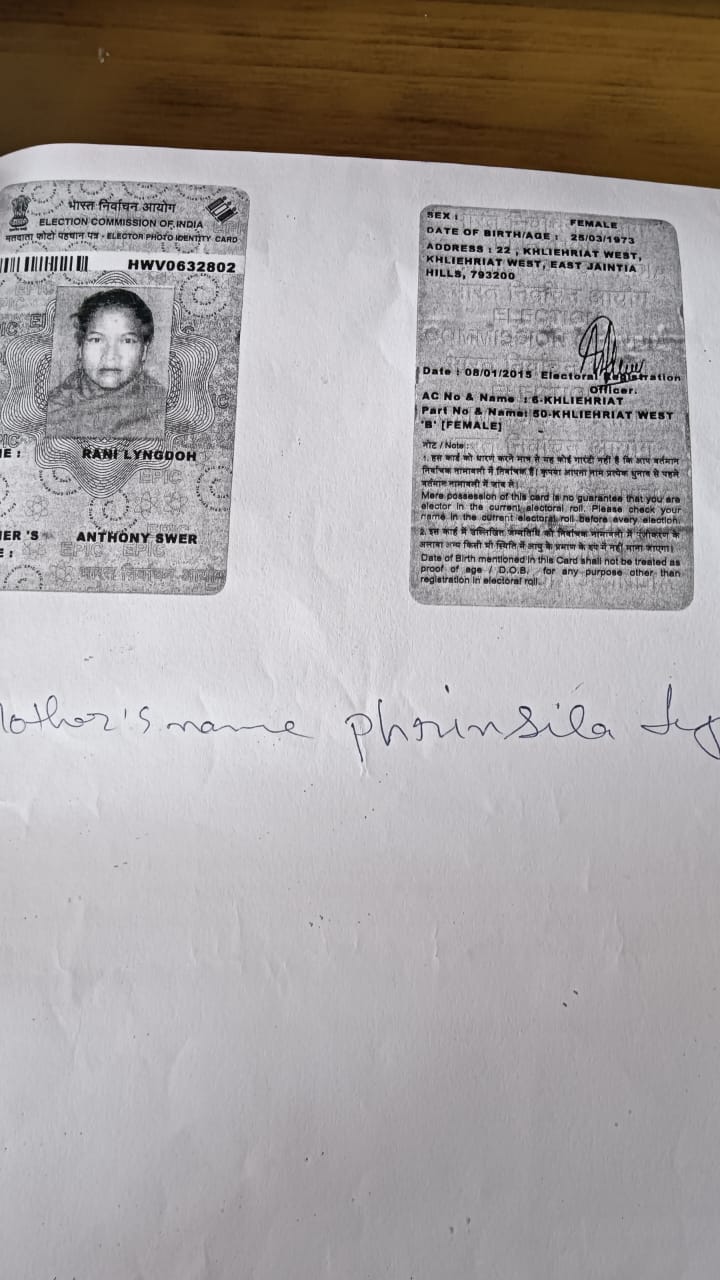 भारत निर्वाचन आयोग
ELECTION COMMISSION OF INDIA
मतदाता फोटो पहचान पत्र - ELECTOR PHOTO IDENTITY CARD
HWV0632802
E : RANI LYNGDOH
ER'S ANTHONY SWER
E :
SEX : FEMALE
DATE OF BIRTH/AGE : 25/03/1973
ADDRESS : 22 , KHLIEHRIAT WEST,
KHLIEHRIAT WEST, EAST JAINTIA
HILLS, 793200
Date : 08/01/2015 Electoral Registration
Officer.
AC No & Name : 6-KHLIEHRIAT
Part No & Name: 50-KHLIEHRIAT WEST
'B' [FEMALE]
नोट / Note :
1. इस कार्ड को धारण करने मात्र से यह कोई गारंटी नहीं है कि आप वर्तमान
निर्वाचक नामावली में निर्वाचक हैं। कृपया आपना नाम प्रत्येक चुनाव से पहले
वर्तमान नामावली में जांच लें।
Mere possession of this card is no guarantee that you are
elector in the current electoral roll. Please check your
name in the current electoral roll before every election.
2. इस कार्ड में उल्लिखित जन्मतिथि को निर्वाचक नामावली में पंजीकरण के
अलावा अन्य किसी भी स्थिति में आयु के प्रमाण के रूप में नहीं माना जाएगा।
Date of Birth mentioned in this Card shall not be treated as
proof of age / D.O.B. for any purpose other than
registration in electoral roll.
other's name phrinsila